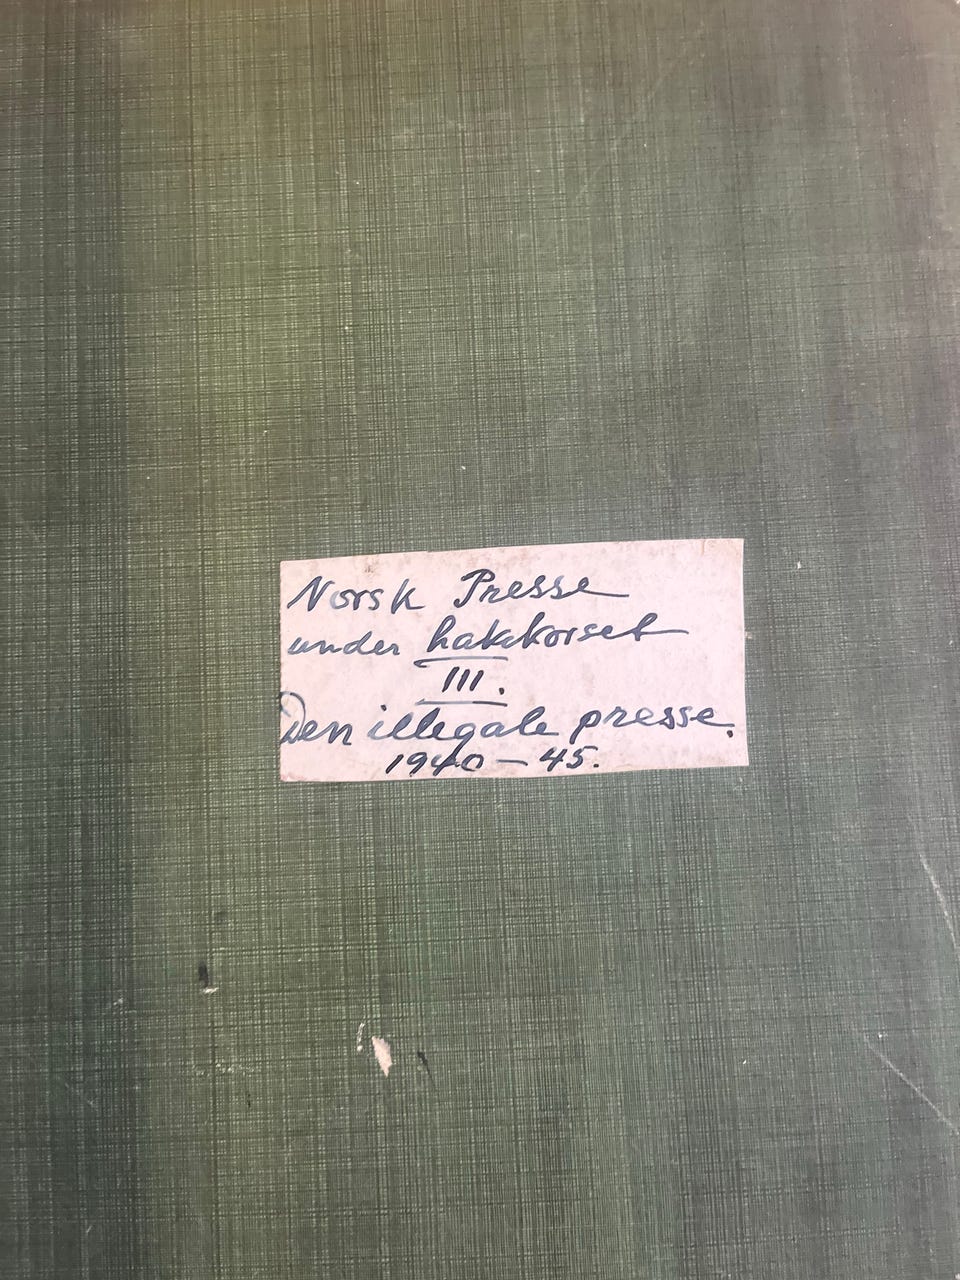 Norsk Presse
under hakekorset
III.
Den illegale presse.
1940 - 45.